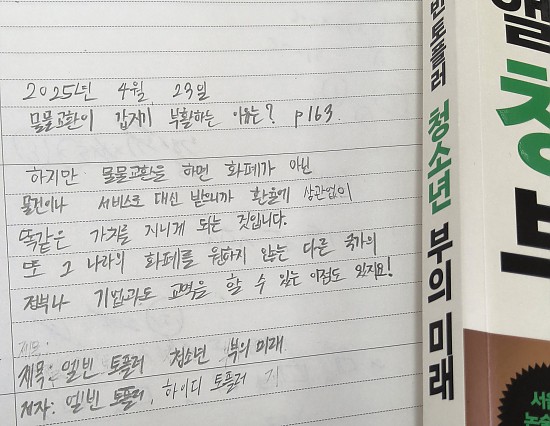 2025년 4월 23일
물물교환이 갑자기 부활하는 이유는? p163.
하지만 물물교환을 하면 화폐가 아닌
물건이나 서비스로 대신 받으니까 환율에 상관없이
똑같은 가치를 지니게 되는 것입니다.
또 그 나라의 화폐를 원하지 않는 다른 국가의
정부나 기업과도 교역을 할 수 있는 이점도 있지요!
제목:
제목: 엘빈 토플러 청소년 부의 미래
저자: 엘빈 토플러, 하이디 토플러
빈 토플러 청소년 부의 미래
청
부
서울
논술